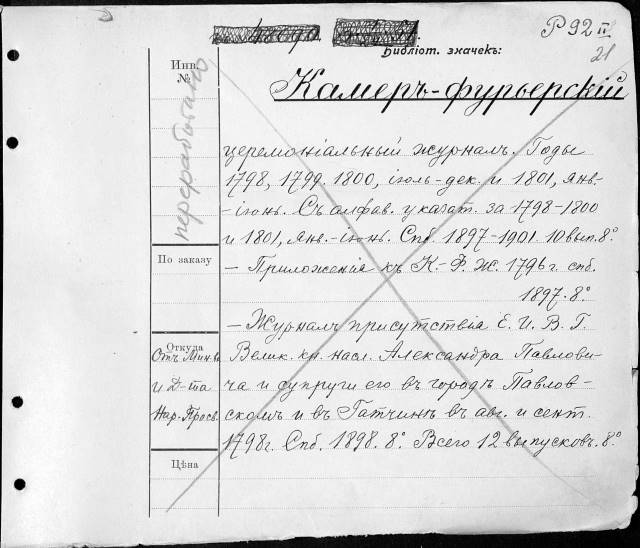 Р 92 II
21
Библіот. значекъ:
Инв. №
переработано
Камеръ-фурьерскій
церемоніальный журналъ. Годы
1798, 1799. 1800, іюль-дек. и 1801, янв.-
-іюнь. Съ алфав. указат. за 1798-1800
и 1801, янв.-іюнь. Спб. 1897-1901. 10 вып. 8°.
По заказу
— Приложенія къ К.-Ф. Ж. 1796 г. спб.
1897. 8°.
— Журналъ присутствія Е. И. В. Г.
Откуда
Отъ Мин-ва
и Д-та
Нар. Просв.
Велик. кн. насл. Александра Павлови-
ча и супруги его въ городѣ Павлов-
скомъ и въ Гатчинѣ въ авг. и сент.
1798 г. Спб. 1898. 8°. Всего 12 выпусковъ. 8°.
Цѣна